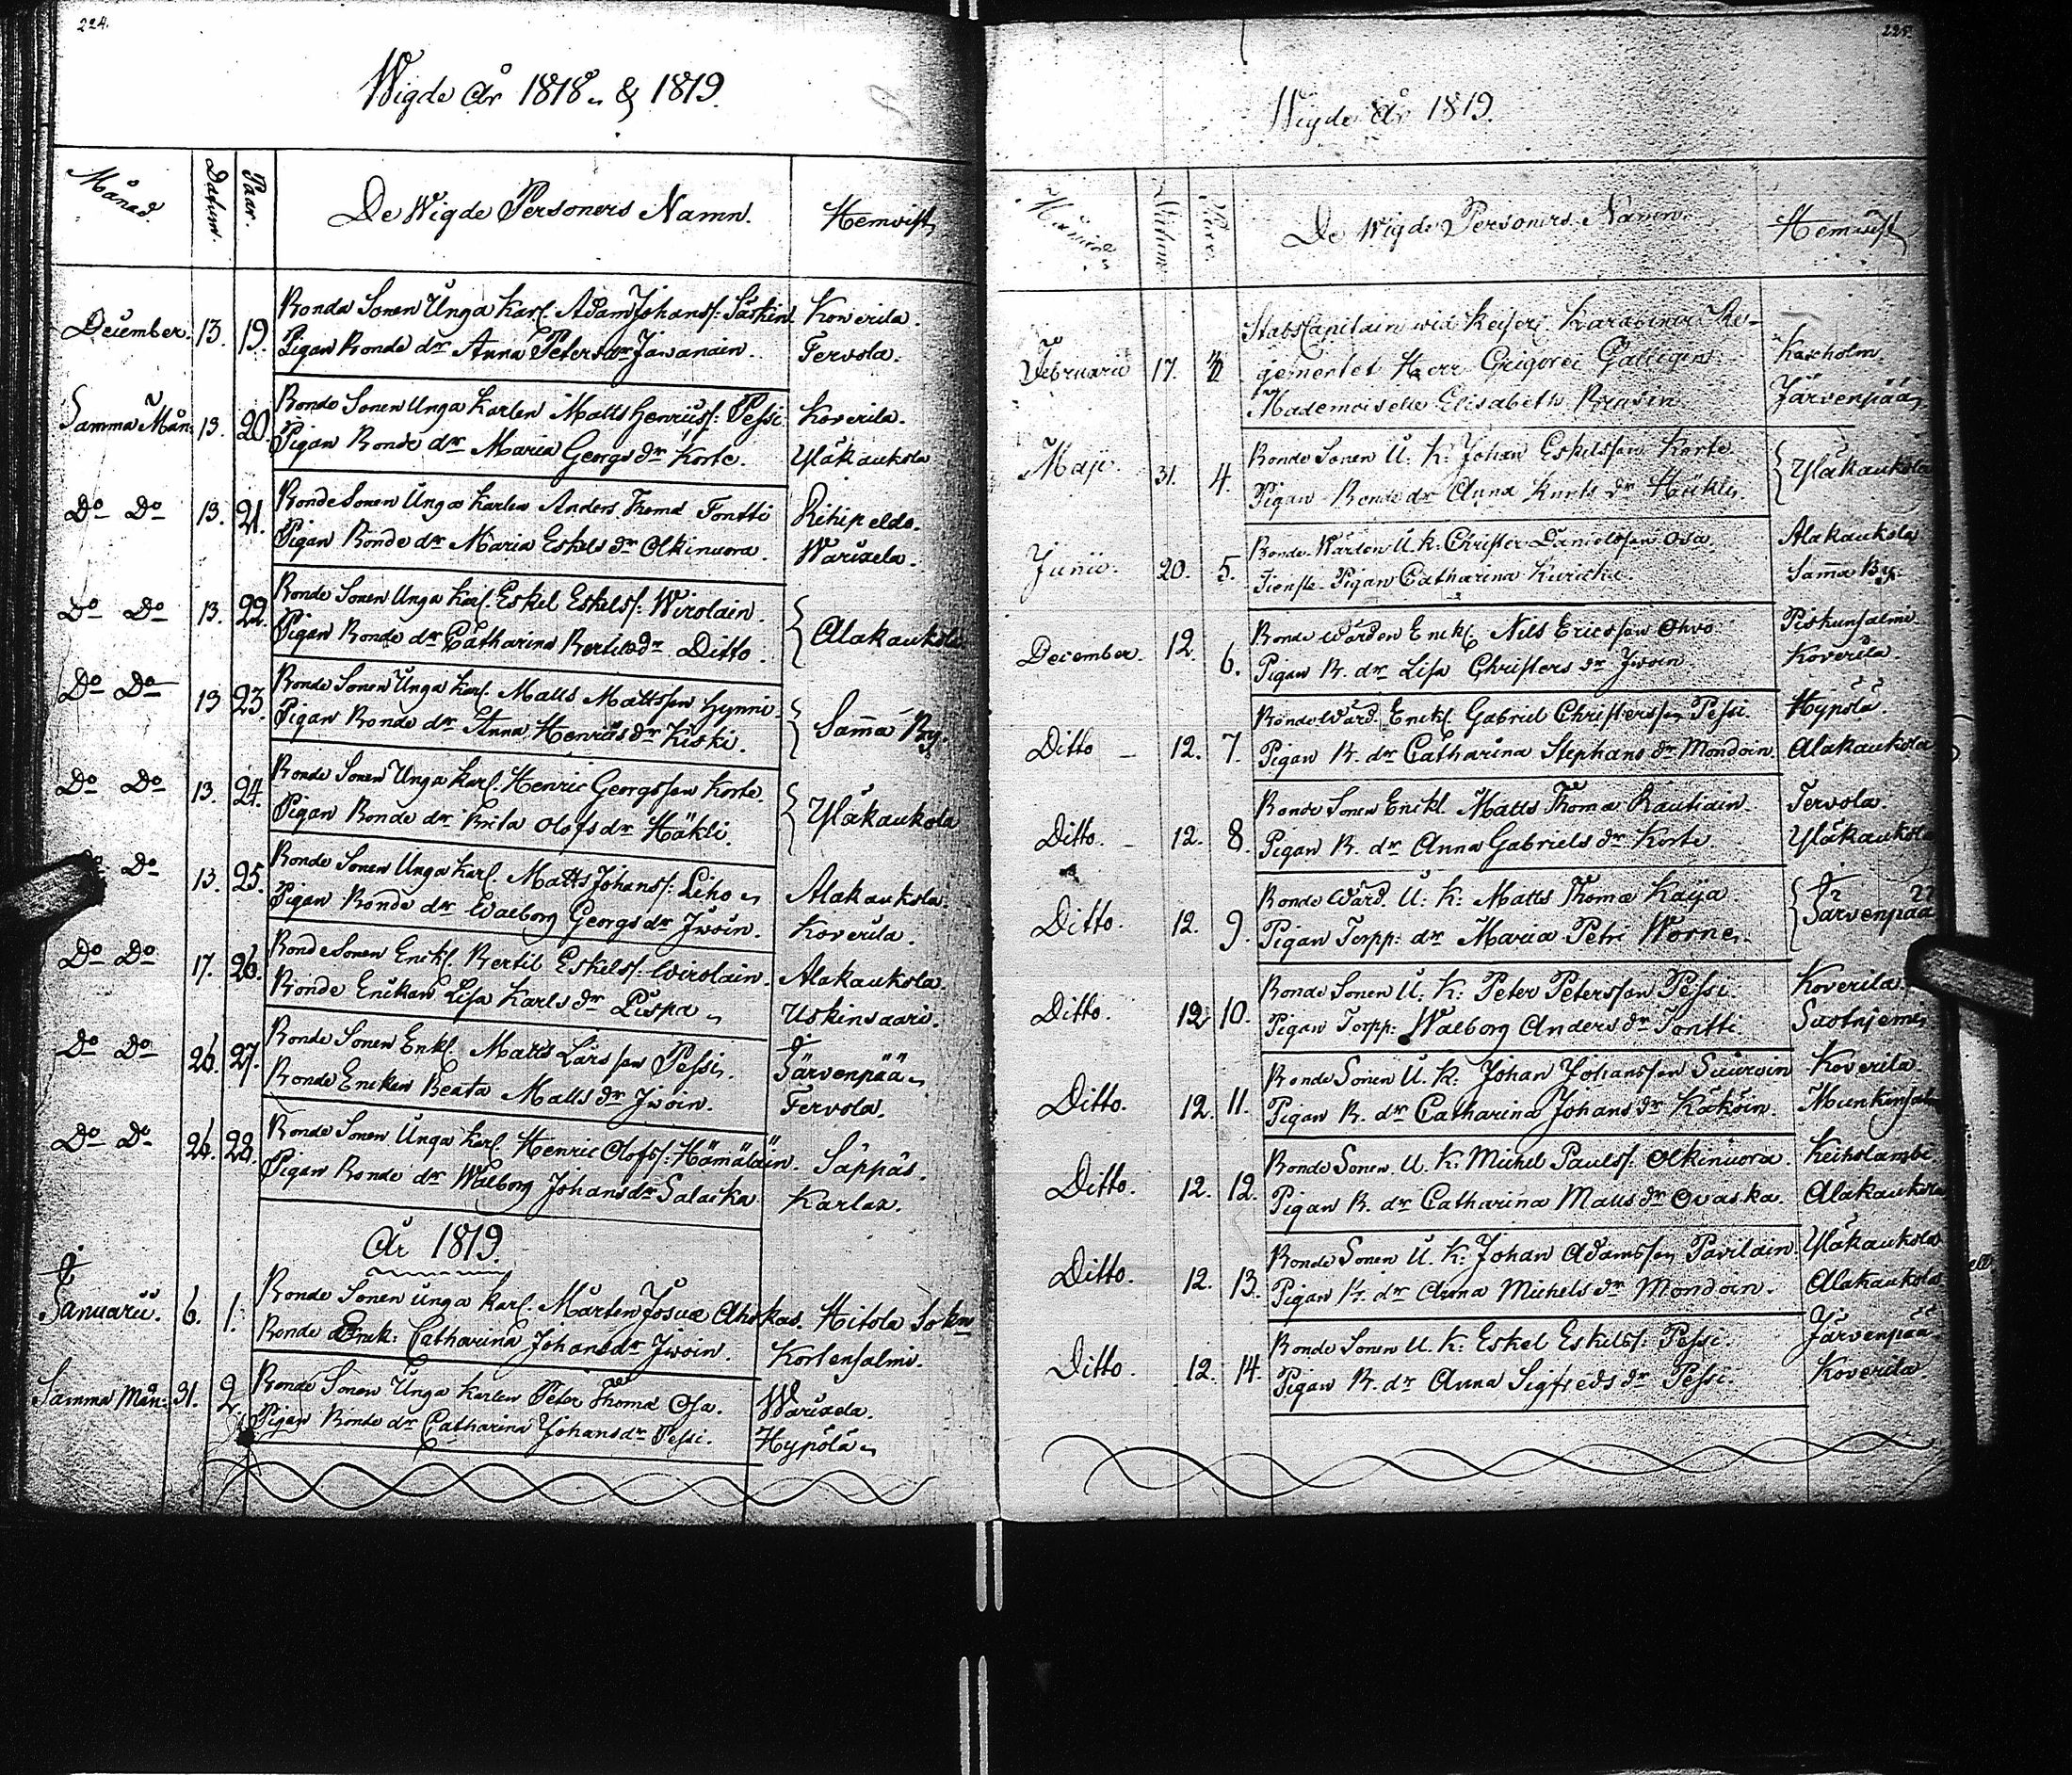 224.
Wigde år 1818. & 1819.
Månad. Datum. Paar. De Wigde Personers Namn. Hemvist
December. 13. 19. Bonde Sonen Unga Karl. Adam Johanss: Säskin Konerila.
Pigan Bonde dr Anna Petersdr Jawanain. Tervola.
Samma Mån: 13. 20. Bonde Sonen Unga Karlen Matts Henricss: Pessi Koverila.
Pigan Bonde dr Maria Georgs dr Korte. Yläkaukola
Do Do 13. 21. Bonde Sonen Unga Karlen Anders Thomæ Tontti Rihipeldo.
Pigan Bonde dr Maria Eskels dr Olkinuora. Warixela.
Do Do 13. 22. Bonde Sonen Unga Karl. Eskel Eskelss: Wirolain.
Pigan Bonde dr Catharina Bertilsdr Ditto. Alakaukola
Do Do 13 23. Bonde Sonen Unga Karl. Matts Mattsson Hynni.
Pigan Bonde dr Anna Henricsdr Kiski. Sam̄a By.
Do Do 13. 24. Bonde Sonen Unga Karl. Henric Georgsson Korte.
Pigan Bonde dr Brita Olofsdr Häkli. Yläkaukola
Do 13. 25. Bonde Sonen Unga Karl. Matts Johanss: Leho Alakaukola
Pigan Bonde dr Walborg Georgsdr Jwoin. Koverila.
Do Do 17. 26. Bonde Sonen Enkl. Bertil Eskelss: Wirolain. Alakaukola.
Bonde Enckan Lisa Karls dr Pispa Uskinsaari.
Do Do 26. 27. Bonde Sonen Enkl. Matts Larsson Pessi. Järvenpää
Bonde Enckan Beata Matts dr Jwoin. Tervola.
Do Do 26. 28. Bonde Sonen Unga Karl. Henric Olofss: Hämäläin. Säppäs.
Pigan Bonde dr Walborg Johansdr Salacka Karlax.
År 1819.
Januarii. 6. 1. Bonde Sonen unga Karl. Mårten Josuæ Ahokas. Hitola Sokn
Bonde Enck: Catharina Johansdr Jwoin. Kortensalmi.
Samma Mån: 31. 2. Bonde Sonen Unga Karlen Peter Thomæ Osa. Warixela.
Pigan Bonde dr Catharina Johansdr Pessi. Hypölä
225.
Wigde År 1819.
Månad Datum Paar. De Wigde Personers Namn. Hemvist
StabsCapitain wid Keiserl. Karabinier Re-
Februarii 17. 3 gementet Herr Grigorei Gallegin Kexholm
Mademoiselle Elisabeth Brusin Järvenpää
Maji. 31. 4. Bonde Sonen U: K: Johan Eskelsson Korte
Pigan Bonde dr Anna Knuts dr Häkli. Yläkaukola
Junii. 20. 5. Bonde Wärden U. K: Christer Danielsson Osa Alakaukola
Tienste Pigan Catharina Sam̄a By.
December. 12. 6. Bonde Wärden Enkl. Nils Ericsson Ohvo Piskunsalmi
Pigan B. dr Lisa Christers dr Jwoin Koverila.
Ditto 12. 7. Bonde Wärd. Enkl. Gabriel Christersson Pessi. Hypölä.
Pigan B. dr Catharina Stephans dr Mondoin. Alakaukola
Ditto. 12. 8. Bonde Sonen Enkl. Matts Thomæ Rautiain. Tervola.
Pigan B. dr Anna Gabriels dr Korte. Yläkaukola
Ditto. 12. 9. Bonde Wärd. U: K: Matts Thomæ Kaija 22
Pigan Torpp: dr Maria Petri Worne. Järvenpää
Ditto. 12 10. Bonde Sonen U: K: Peter Petersson Pessi. Koverila.
Pigan Torpp: Walborg Anders dr Tontti.
Ditto. 12. 11. Bonde Sonen U. K: Johan Johansson Koverila.
Pigan B. dr Catharina Johans dr Käkoin.
Ditto. 12. 12. Bonde Sonen U. K: Michel Paulss: Olkinuora. Keiholambi
Pigan B. dr Catharina Matts dr Ovaska. Alakaukola
Ditto. 12. 13. Bonde Sonen U. K: Johan Adamsson Pavilain. Yläkaukola
Pigan B. dr Anna Michels dr Mondoin. Alakaukola
Ditto. 12. 14. Bonde Sonen U. K: Eskel Eskelss: Pessi. Järvenpää
Pigan B. dr Anna Sigfreds dr Pessi. Koverila.